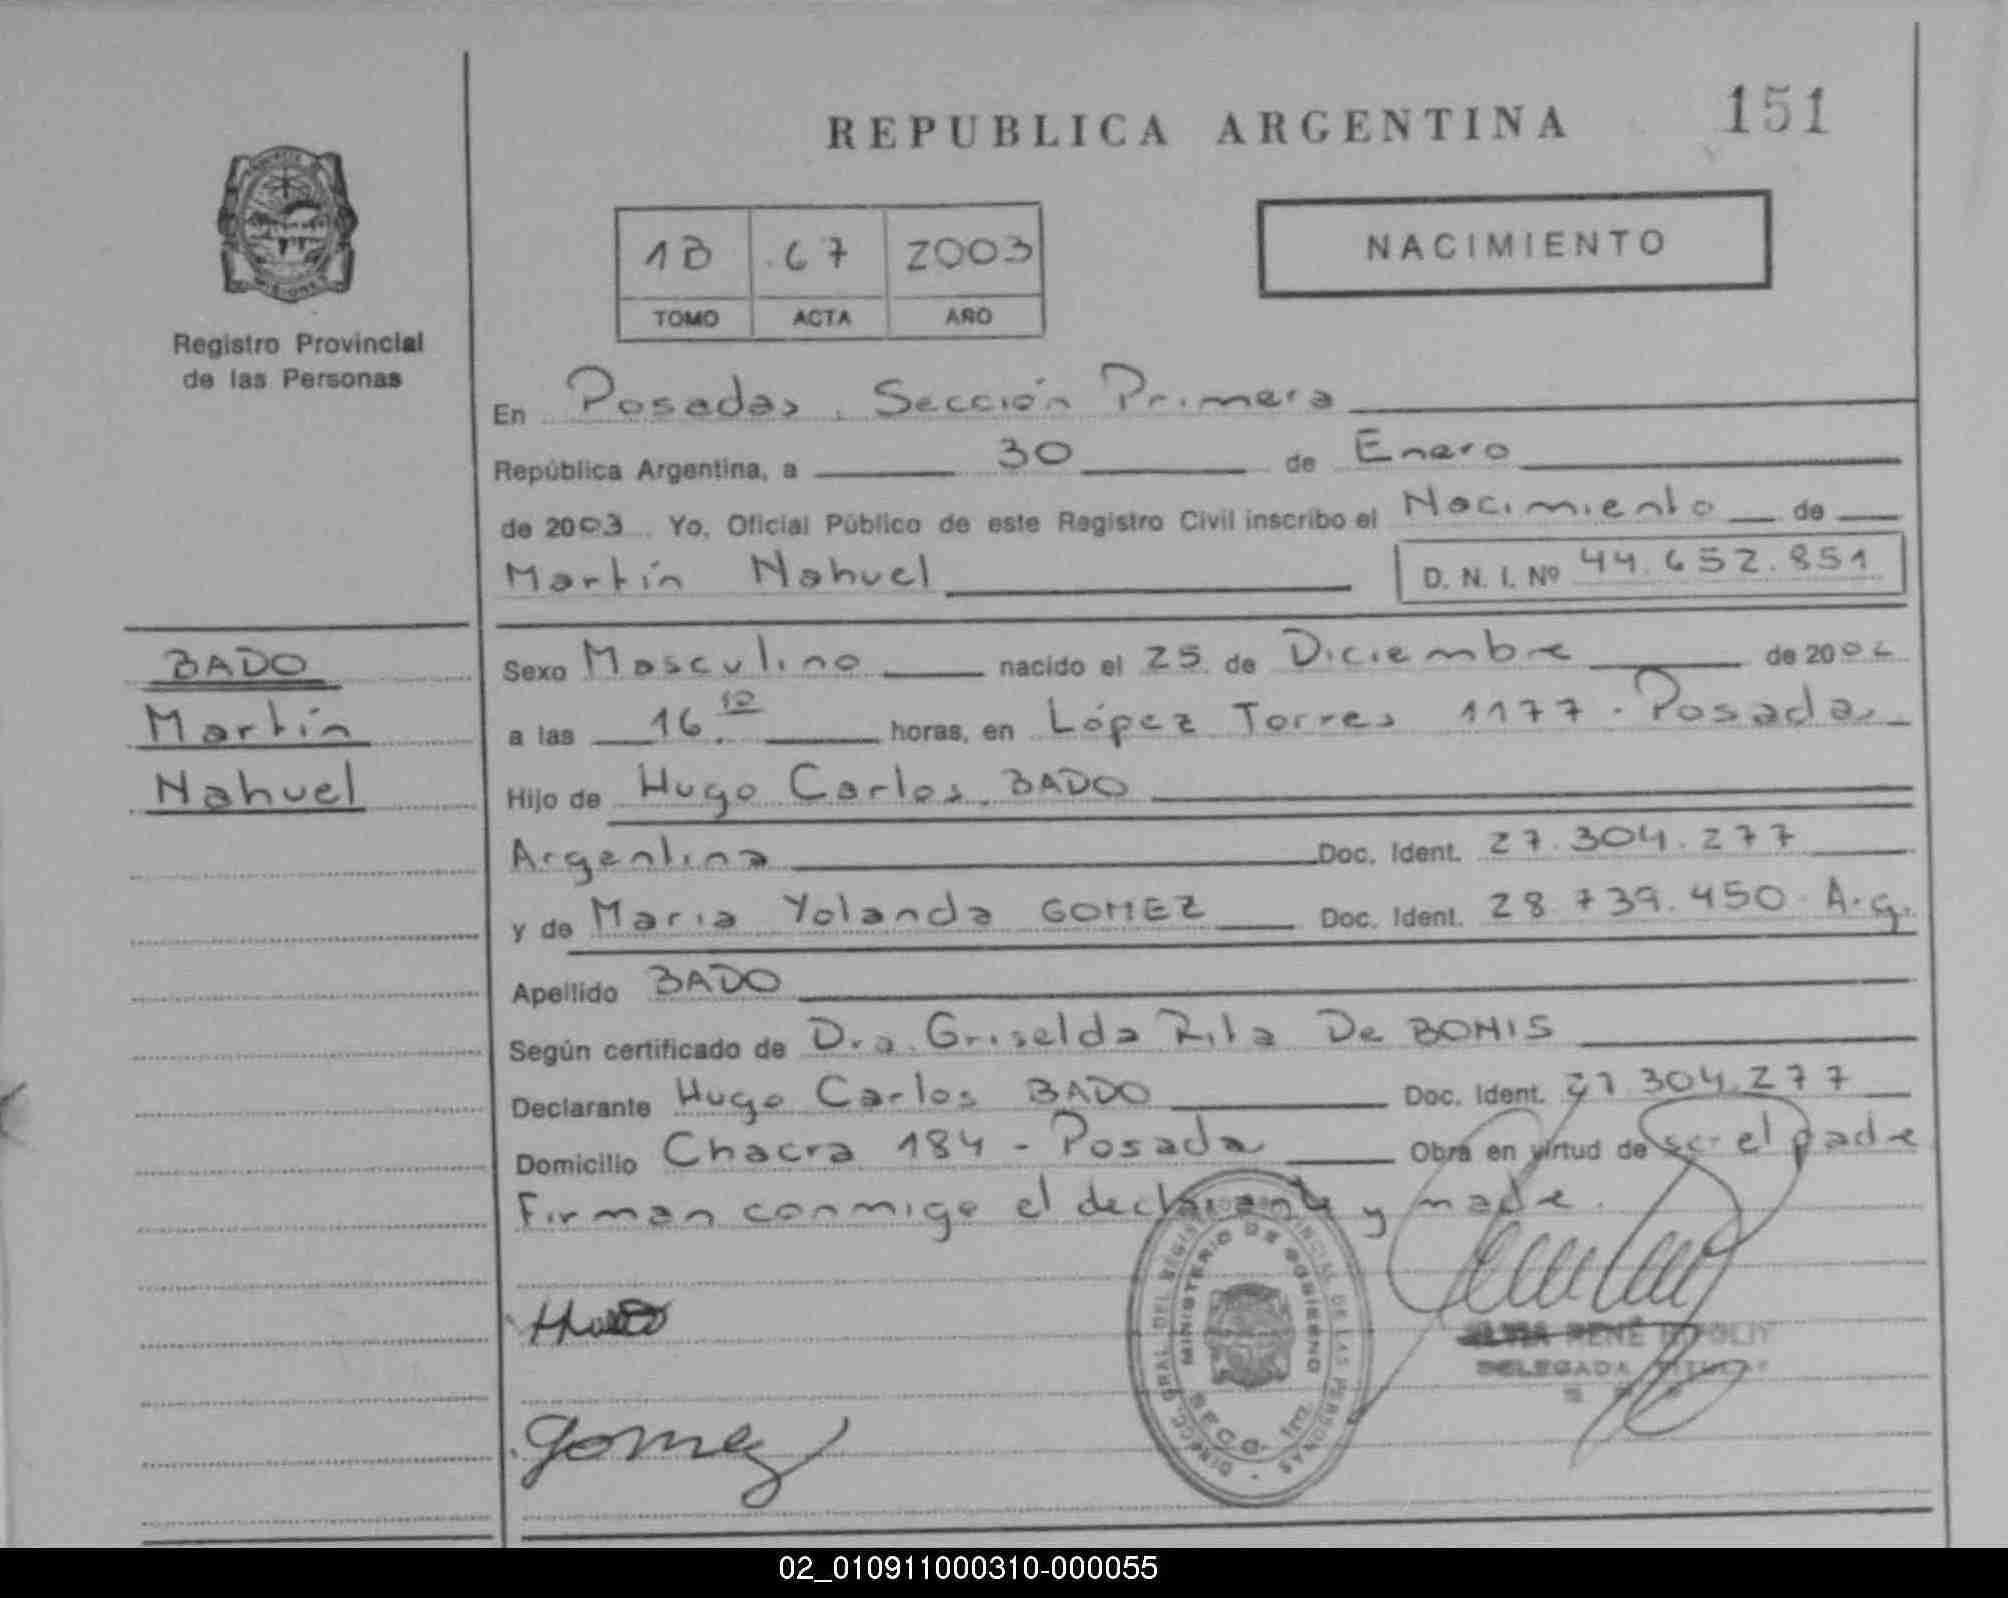 REPUBLICA ARGENTINA 151
NACIMIENTO
1B 67 2003
TOMO ACTA AÑO
Registro Provincial
de las Personas
En Posadas, Sección Primera
República Argentina, a 30 de Enero
de 2003 Yo, Oficial Público de este Registro Civil inscribo el Nacimiento de
Martín Nahuel D. N. I. Nº 44.652.851
BADO
Martín
Nahuel
Sexo Masculino nacido el 25 de Diciembre de 2002
a las 16.10 horas, en López Torres 1177 - Posadas
Hijo de Hugo Carlos BADO
Argentina Doc. Ident. 27.304.277
y de Maria Yolanda GOMEZ Doc. Ident. 28.739.450 Arg.
Apellido BADO
Según certificado de Dra. Griselda Rita De BONIS
Declarante Hugo Carlos BADO Doc. Ident. 27.304.277
Domicilio Chacra 184 - Posadas Obra en virtud de ser el padre
Firman conmigo el declarante y madre.
MINISTERIO DE GOBIERNO
RENÉ
DELEGADA TITULAR
Gomez
02_010911000310-000055